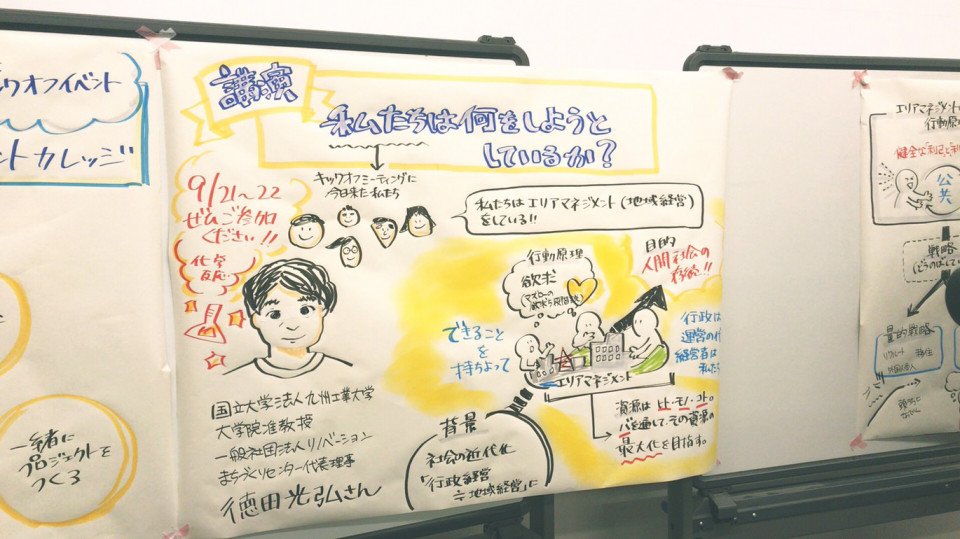 クオフイベント
ントカレッジ
一緒に
プロジェクトを
つくる
講演
私たちは何をしようと
しているか?
キックオフミーティングに
今日来た私たち
9/21~22
ぜひご参加
ください!!
化学
反応
私たちは エリアマネジメント(地域経営)
をしている!!
行動原理
欲求
(マズローの
目的
人間社会の
存続!!
できること
を
持ちよって
エリアマネジメント
行政は
運営の
経営者は
私た
資源は ヒト・モノ・コト。
を通して、その資源の
最大化を目指す。
背景
社会の近代化
「行政経営
≒地域経営」に
国立大学法人九州工業大学
大学院准教授
一般社団法人リノベーション
まちづくりセンター代表理事
徳田光弘さん
エリアマネジメント
行動原
健全な利己と利
公共
戦略
量的戦略
リクルート 移住
外国法人